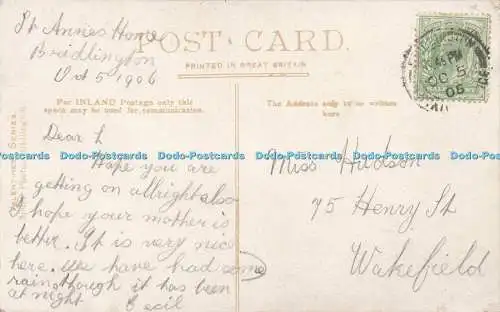 St Annes Home
Bridlington
Oct 5 1906
POST CARD.
PRINTED IN GREAT BRITAIN
For INLAND Postage only this
space may be used for communication.
The Address only to be written
here
VALENTINES SERIES
Dear L
Hope you are
getting on allright also
I hope your mother is
better. It is very nice
here. We have had some
rain though it has been
at night Cecil
Miss Hudson
75 Henry St
Wakefield
OC 5
06
Dodo-Postcards Dodo-Postcards Dodo-Postcards Dodo-Postcards Dodo-Postcards
Dodo-Postcards Dodo-Postcards Dodo-Postcards Dodo-Postcards Dodo-Postcards